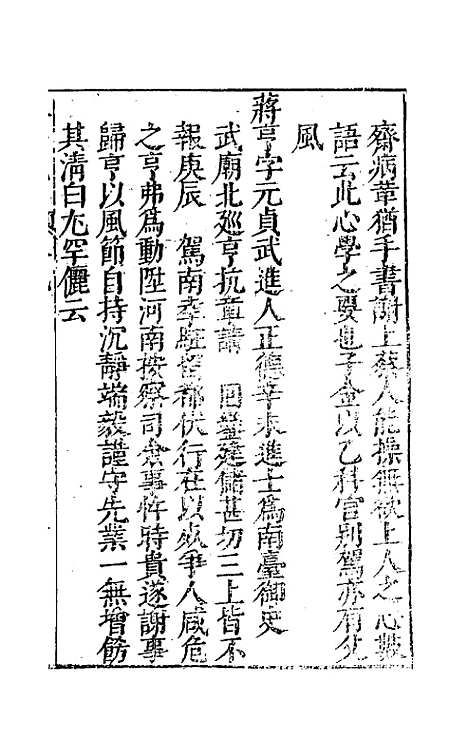 齋病革猶手書謝上蔡人能操無欲上人之心數
語云此心學之要也子金以乙科官别駕亦有父
風
蔣亨字元貞武進人正德辛未進士為南臺御史
武廟北廵亨抗章請 回鑾建儲甚切三上皆不
報庚辰 駕南幸駐留都伏行在以死爭人咸危
之亨弗為動陞河南按察司僉事忤時貴遂謝事
歸亨以風節自持沉靜端毅謹守先業一無增飭
其清白尤罕儷云